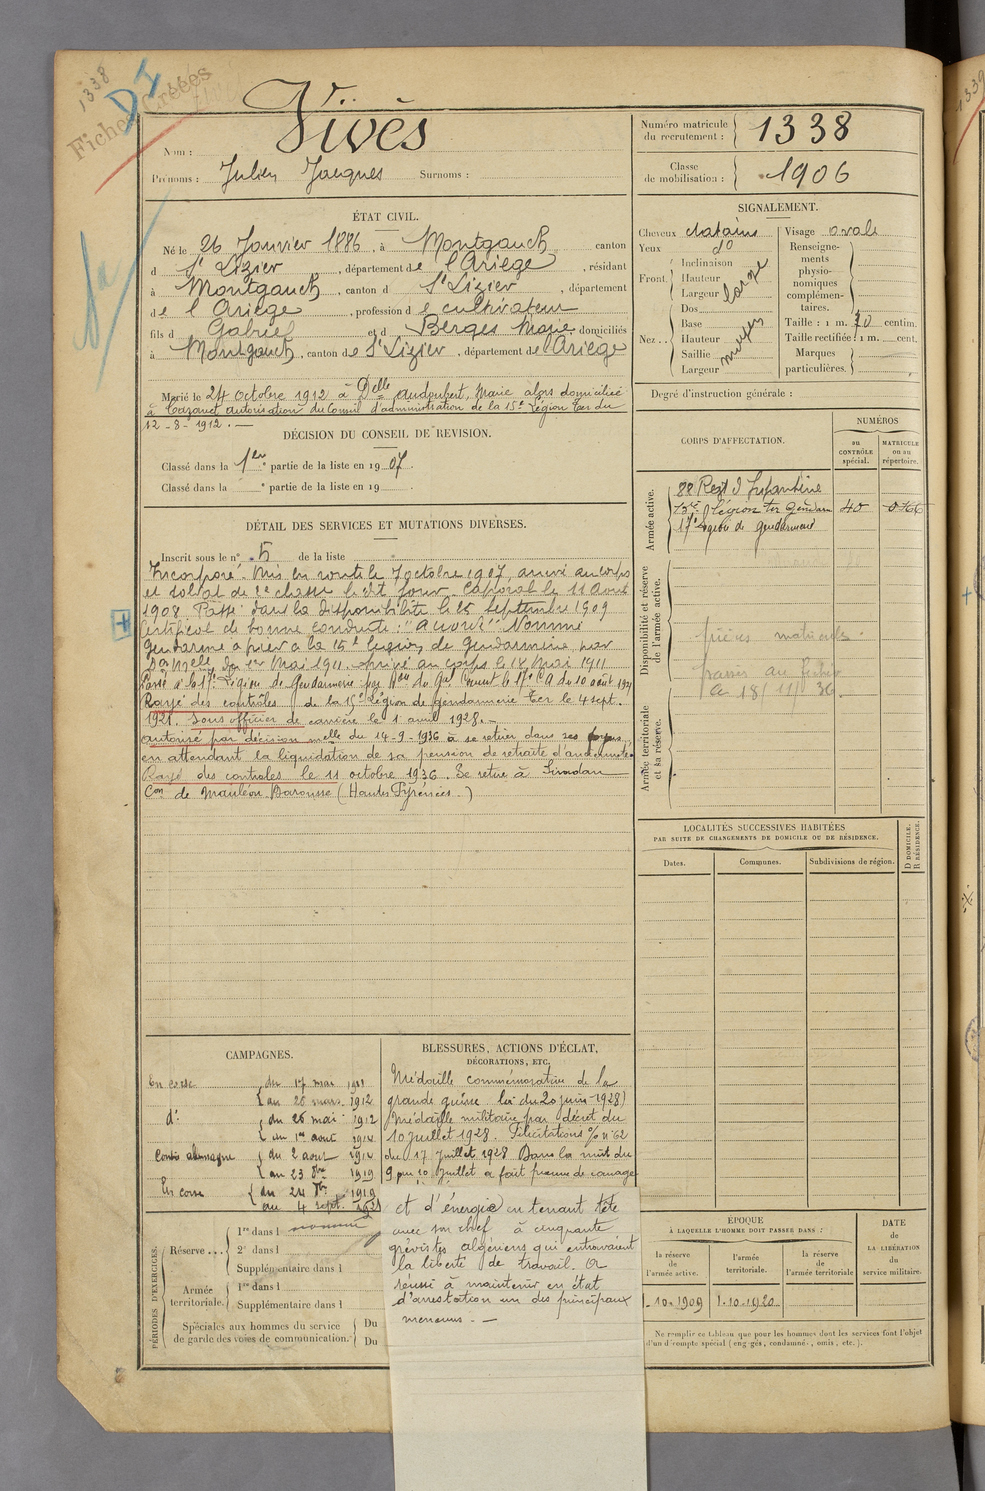 1338
D I
Fiches Créées
Nom : Vivès
Prénoms : Julien Jacques Surnoms :
Numéro matricule du recrutement : 1338
Classe de mobilisation : 1906
ÉTAT CIVIL.
Né le 26 Janvier 1886, à Montgauch canton
d St Lizier, département de l'Ariège, résidant
à Montgauch, canton d St Lizier, département
de l'Ariège, profession de cultivateur
fils d Gabriel et d Berges Marie domiciliés
à Montgauch, canton de St Lizier, département de l'Ariège
Marié le 24 octobre 1912 à Delle Audoubert, Marie alors domiciliée
à Cazavet autorisation du Conseil d'administration de la 15e Légion ter du
12-8-1912.
SIGNALEMENT.
Cheveux chatains
Yeux do
Front
Inclinaison
Hauteur
Largeur
large
Nez
Dos
Base
Hauteur
Saillie
Largeur
moyen
Visage ovale
Renseignements physionomiques complémentaires.
Taille : 1 m. 70 centim.
Taille rectifiée : 1 m. cent.
Marques particulières.
Degré d'instruction générale :
DÉCISION DU CONSEIL DE REVISION.
Classé dans la 1ère partie de la liste en 1907.
Classé dans la e partie de la liste en 19
CORPS D'AFFECTATION.
NUMÉROS
au CONTRÔLE spécial.
MATRICULE ou au répertoire.
Armée active.
88 Regt d'Infanterie
15e légion ter Gendarm 40
17e Légion de gendarmerie
Disponibilité et réserve de l'armée active.
pièces matricules.
passées au fichier
le 18/11/36.
Armée territoriale et sa réserve.
DÉTAIL DES SERVICES ET MUTATIONS DIVERSES.
Inscrit sous le n° 5 de la liste
Incorporé. Mis en route le 7 octobre 1907, arrivé au corps
et soldat de 2e classe le dit jour. Caporal le 11 août
1908. Passé dans la disponibilité le 25 septembre 1909
Certificat de bonne conduite : "Accordé" Nommé
Gendarme à pied à la 15e légion de Gendarmerie par
Don Mlle du 1er Mai 1911. Arrivé au corps le 18 mai 1911
Passé à la 17e Légion de Gendarmerie par Don du Gal Commt le 17e CA du 10 août 1921
Rayé des contrôles de la 15e Légion de gendarmerie ter le 4 sept.
1921. Sous officier de carrière le 1 avril 1928.
autorisé par décision melle du 14-9-1936 à se retirer dans ses foyers,
en attendant la liquidation de sa pension de retraite d'ancienneté.
Rayé des controles le 11 octobre 1936. Se retire à
Con de Mauléon Barousse (Hautes Pyrénées.)
LOCALITÉS SUCCESSIVES HABITÉES
PAR SUITE DE CHANGEMENTS DE DOMICILE OU DE RÉSIDENCE.
Dates.
Communes.
Subdivisions de région.
D DOMICILE.
R RÉSIDENCE.
CAMPAGNES.
En corse du 17 mai 1911
au 26 mars 1912
do du 26 mai 1912
au 1er août 1914
Contre allemagne du 2 aout 1914
au 23 8bre 1919
En corse du 24 8bre 1919
au 4 sept. 1921
BLESSURES, ACTIONS D'ÉCLAT,
DÉCORATIONS, ETC.
Médaille commémorative de la
grande guerre loi du 20 juin 1928)
Médaille militaire par décret du
10 juillet 1928. Félicitations % n° 62
du 17 juillet 1928 Dans la nuit du
9 au 10 juillet a fait preuve de courage
et d'énergie en tenant tête
avec son chef à cinquante
grévistes algériens qui entravaient
la liberté de travail. A
réussi à maintenir en état
d'arrestation un des principaux
meneurs.
PÉRIODES D'EXERCICES.
Réserve
1re dans l
2e dans l
Supplémentaire dans l
Armée territoriale.
1re dans l
Supplémentaire dans l
Spéciales aux hommes du service de garde des voies de communication.
Du
Du
ÉPOQUE
À LAQUELLE L'HOMME DOIT PASSER DANS :
la réserve de l'armée active.
l'armée territoriale.
la réserve de l'armée territoriale
DATE
de
LA LIBÉRATION
du
service militaire.
1-10-1909
1.10.1920
Ne remplir ce tableau que pour les hommes dont les services font l'objet
d'un décompte spécial (engagés, condamnés, omis, etc.).